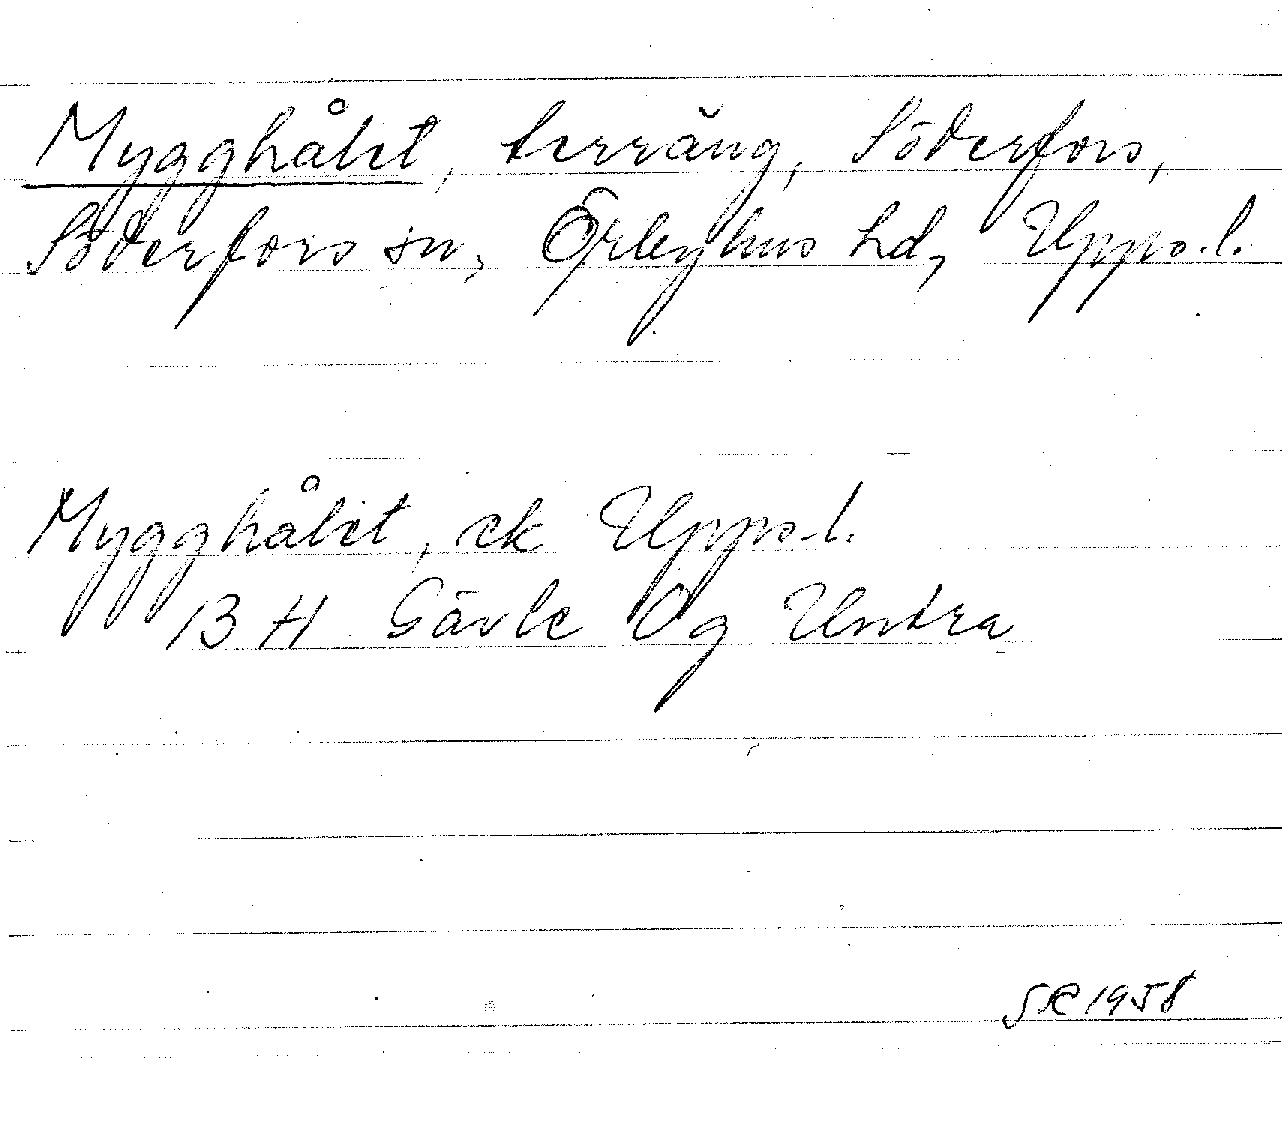 Mygghålet, terräng, Söderfors,
Söderfors sn, Örbyhus hd, Upps.l.
Mygghålet, ek Upps.l.
13 H Gävle Og Untra
SR 1958